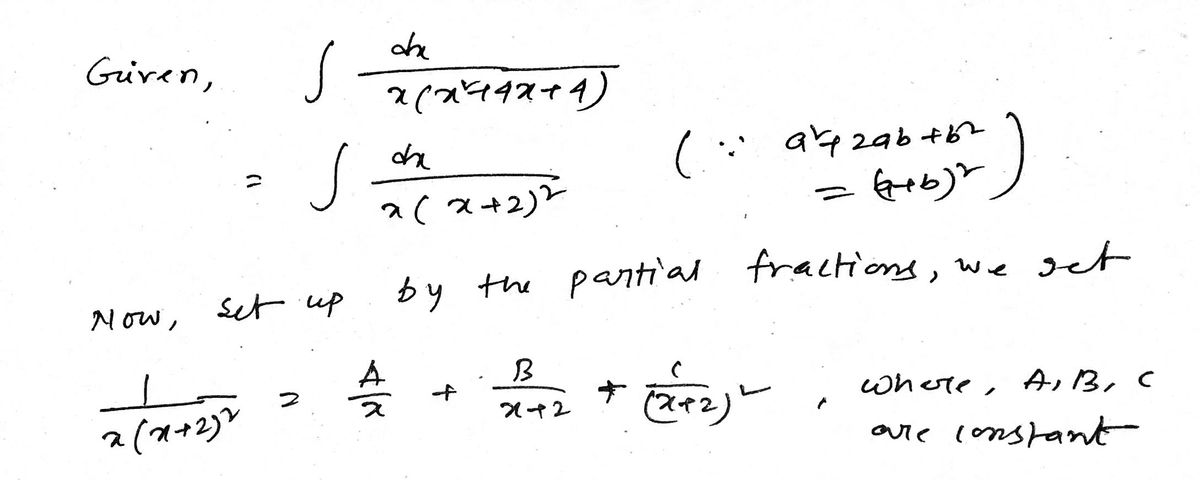 Given, ∫ dx / x(x²+4x+4)
= ∫ dx / x(x+2)² (∵ a²+2ab+b² = (a+b)²)
Now, set up by the partial fractions, we get
1 / x(x+2)² = A/x + B/x+2 + C/(x+2)², where, A, B, C
are constant